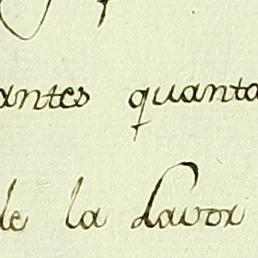 antes quanta
de la Lavor